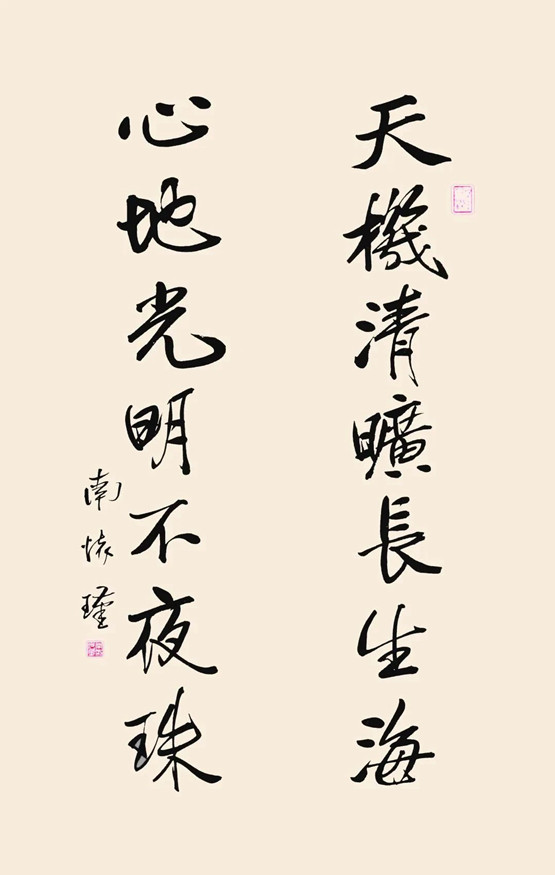 天機清曠長生海
心地光明不夜珠
南懷瑾